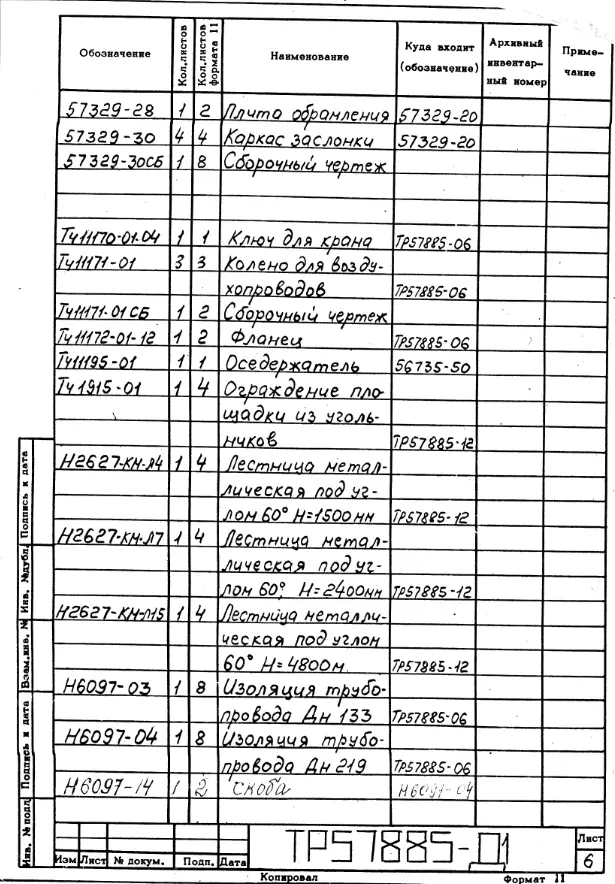 Обозначение Кол.листов Кол.листов формата 11 Наименование Куда входит (обозначение) Архивный инвентар-ный номер Приме-чание
57329-28 1 2 Плита обрамления 57329-20
57329-30 4 4 Каркас заслонки 57329-20
57329-30СБ 1 8 Сборочный чертеж
Тч11170-01-04 1 1 Ключ для крана ТР57885-06
Тч11171-01 3 3 Колено для возду-
хопроводов ТР57885-06
Тч11171-01 СБ 1 2 Сборочный чертеж
Тч11172-01-12 1 2 Фланец ТР57885-06
Тч11195-01 1 1 Оседержатель 56735-50
Тч1915-01 1 4 Ограждение пло-
щадки из уголь-
ников ТР57885-12
Н2627-КМ-Л4 1 4 Лестница метал-
лическая под уг-
лом 60° Н=1500мм ТР57885-12
Н2627-КМ-Л7 1 4 Лестница метал-
лическая под уг-
лом 60°, Н=2400мм ТР57885-12
Н2627-КМ-Л15 1 4 Лестница металли-
ческая под углом
60° Н=4800м. ТР57885-12
Н6097-03 1 8 Изоляция трубо-
провода Дн 133 ТР57885-06
Н6097-04 1 8 Изоляция трубо-
провода Дн 219 ТР57885-06
Н6097-14 1 2 Скоба Н6097-04
Инв. № подл. Подпись и дата Взам.инв. № Инв. №дубл. Подпись и дата
ТР57885-Д1
Лист
6
Изм Лист № докум. Подп. Дата
Копировал Формат 11